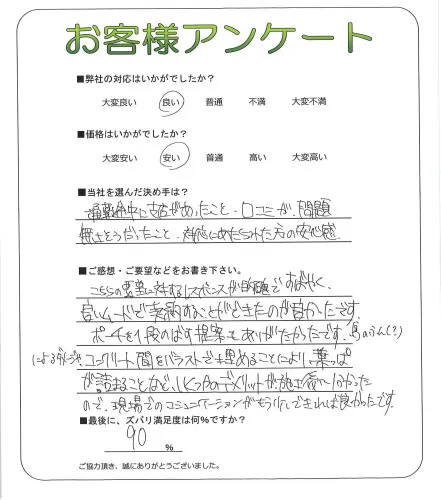 お客様アンケート
■弊社の対応はいかがでしたか?
大変良い 良い 普通 不満 大変不満
■価格はいかがでしたか?
大変安い 安い 普通 高い 大変高い
■当社を選んだ決め手は?
通勤途中に支店があったこと・口コミが、問題
無さそうだったこと・対応にあたられた方の安心感
■ご感想・ご要望などをお書き下さい。
こちらの要望に対するレスポンスが的確ですばやく、
良いムードで契約することができたのが良かったです
ポーチを1段のばす提案もありがたかったです。鳥のふん(?)
によるダメージ、コンクリート間をバラストで埋めることにより、葉っぱ
が詰まることなど、いくつかのデメリットが施工後に分かった
ので、現場でのコミュニケーションがもう少しできれば良かったです。
■最後に、ズバリ満足度は何%ですか?
90
%
ご協力頂き、誠にありがとうございました。